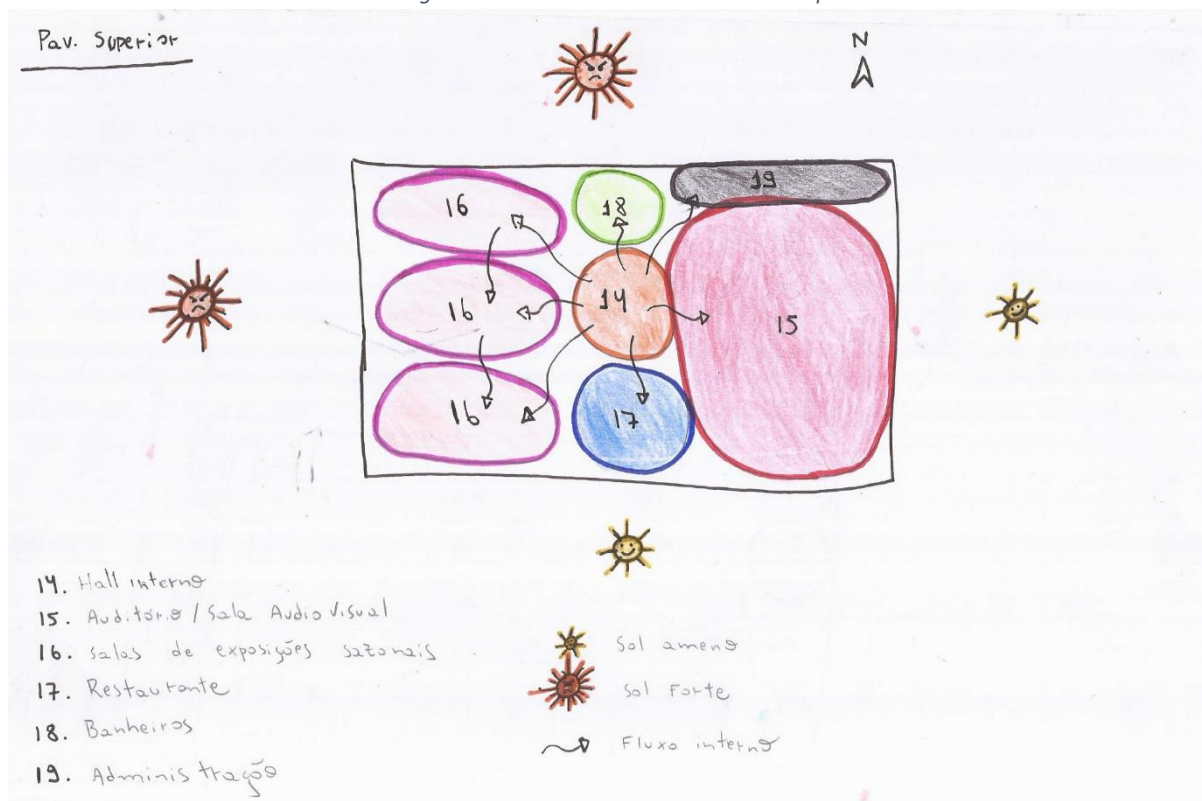 Pav. Superior
N
19
16
18
16
14
15
16
17
14. Hall interno
15. Auditório / Sala Audio Visual
16. Salas de exposições sazonais
17. Restaurante
18. Banheiros
19. Administração
Sol ameno
Sol Forte
Fluxo interno